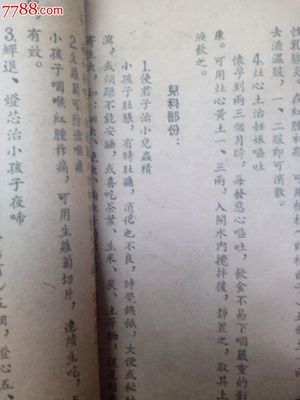 7788.com
去渣温服,一、二服即可消散。
4. 灶心土治妊娠嘔吐
懷孕到兩三個月時,每發惡心嘔吐,飲食不易下咽嚴重的影
康。可用灶心黄土一、二兩,入開水內攪拌後,靜置之,取其上
液飲之。
兒科部份:
1. 使君子治小兒蟲積
小孩子肚脹,有時肚痛,消化也不良,時覺饑餓,大便或秘結
瀉,或煩躁不能安睡,或喜吃茶葉、生米、炭、土等物,
2. 生蘿蔔可防治喉痛
小孩子咽喉紅腫作痛,可用生蘿蔔切片,連續生吃,
有效。
3. 蟬退、燈芯治小孩子夜啼